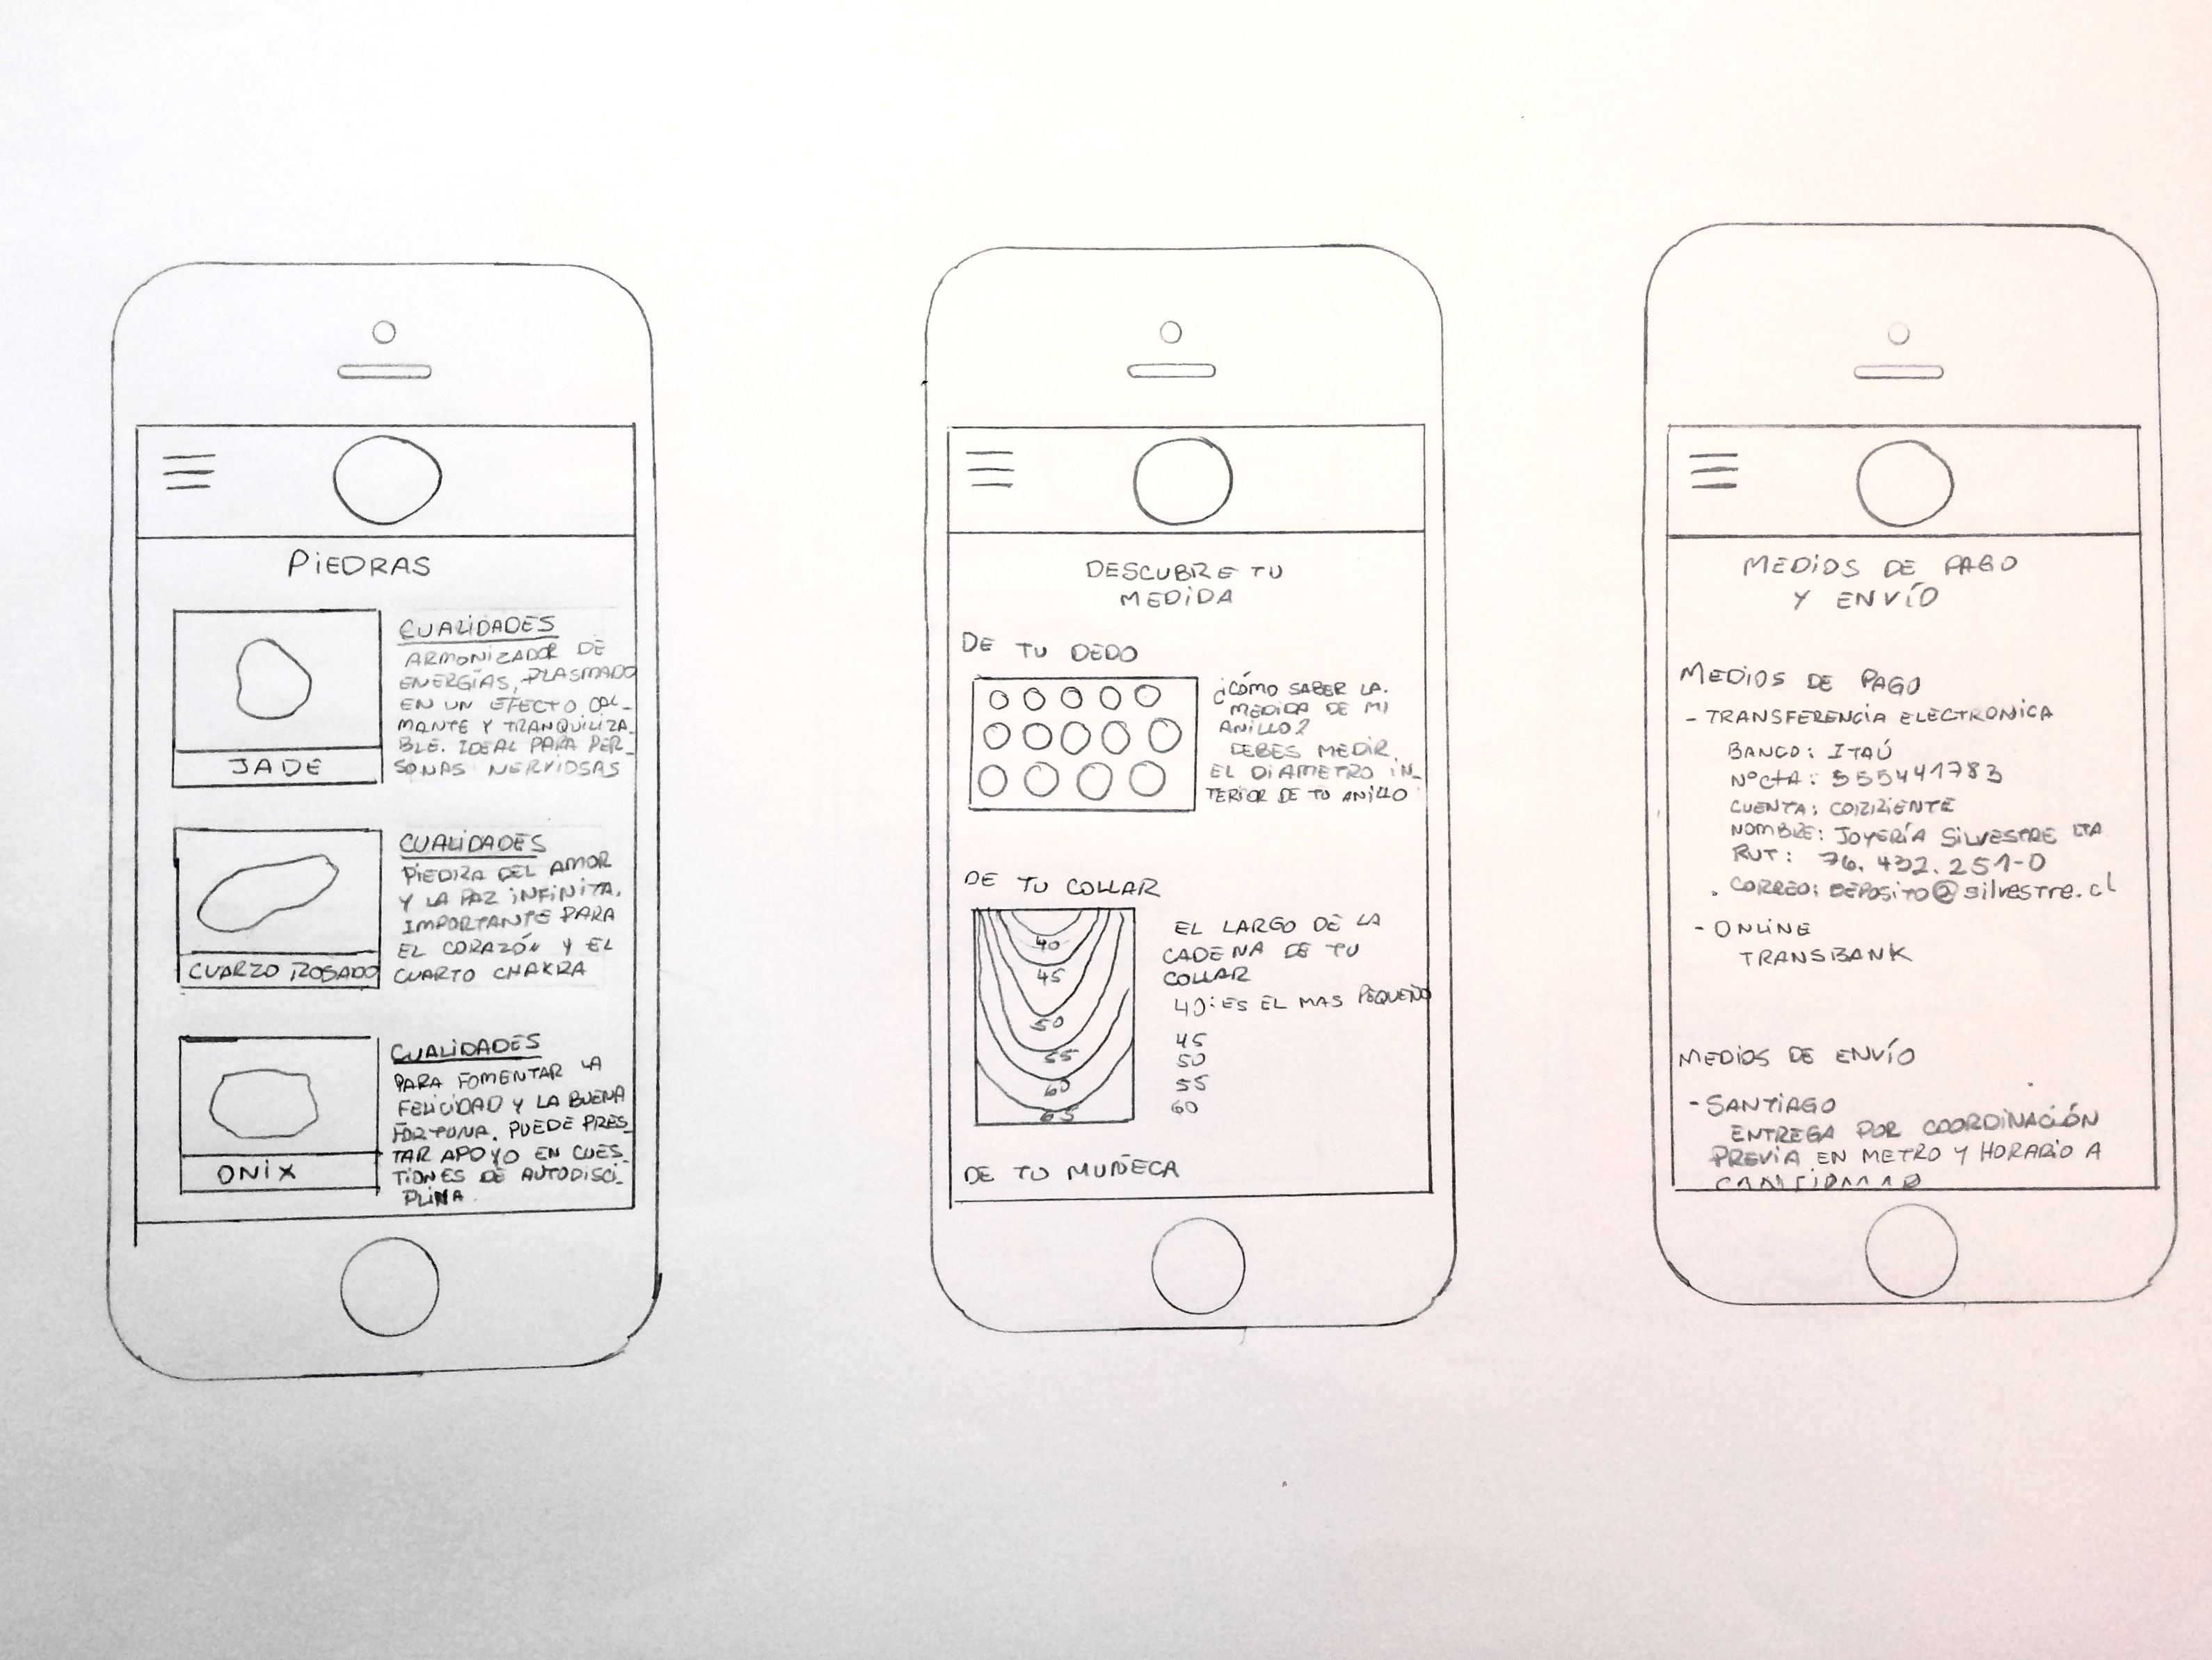 PIEDRAS
CUALIDADES
ARMONIZADOR DE
ENERGÍAS, PLASMADO
EN UN EFECTO CAL-
MANTE Y TRANQUILIZA-
BLE. IDEAL PARA PER-
SONAS NERVIOSAS
JADE
CUALIDADES
PIEDRA DEL AMOR
Y LA PAZ INFINITA.
IMPORTANTE PARA
EL CORAZÓN Y EL
CUARTO CHAKRA
CUARZO ROSADO
CUALIDADES
PARA FOMENTAR LA
FELICIDAD Y LA BUENA
FORTUNA. PUEDE PRES-
TAR APOYO EN CUES-
TIONES DE AUTODISCI-
PLINA.
ONIX
DESCUBRE TU
MEDIDA
DE TU DEDO
¿CÓMO SABER LA
MEDIDA DE MI
ANILLO?
DEBES MEDIR
EL DIAMETRO IN-
TERIOR DE TU ANILLO
DE TU COLLAR
40
45
50
55
60
65
EL LARGO DE LA
CADENA DE TU
COLLAR
40: ES EL MAS PEQUEÑO
45
50
55
60
DE TU MUÑECA
MEDIOS DE PAGO
Y ENVÍO
MEDIOS DE PAGO
- TRANSFERENCIA ELECTRONICA
BANCO: ITAÚ
NºCTA: 555441783
CUENTA: CORRIENTE
NOMBRE: JOYERÍA SILVESTRE LTA
RUT: 76.432.251-0
. CORREO: DEPOSITO@silvestre.cl
- ONLINE
TRANSBANK
MEDIOS DE ENVÍO
- SANTIAGO
ENTREGA POR COORDINACIÓN
PREVIA EN METRO Y HORARIO A